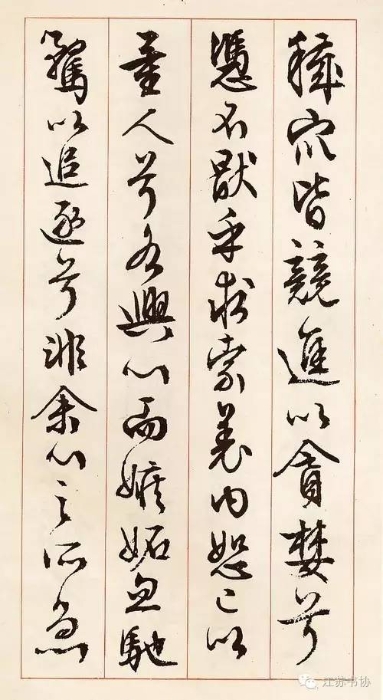 穢衆皆競進以貪婪兮
憑不猒乎求索羌内恕己以
量人兮各興心而嫉妬忽馳
騖以追逐兮非余心之所急
江苏书协